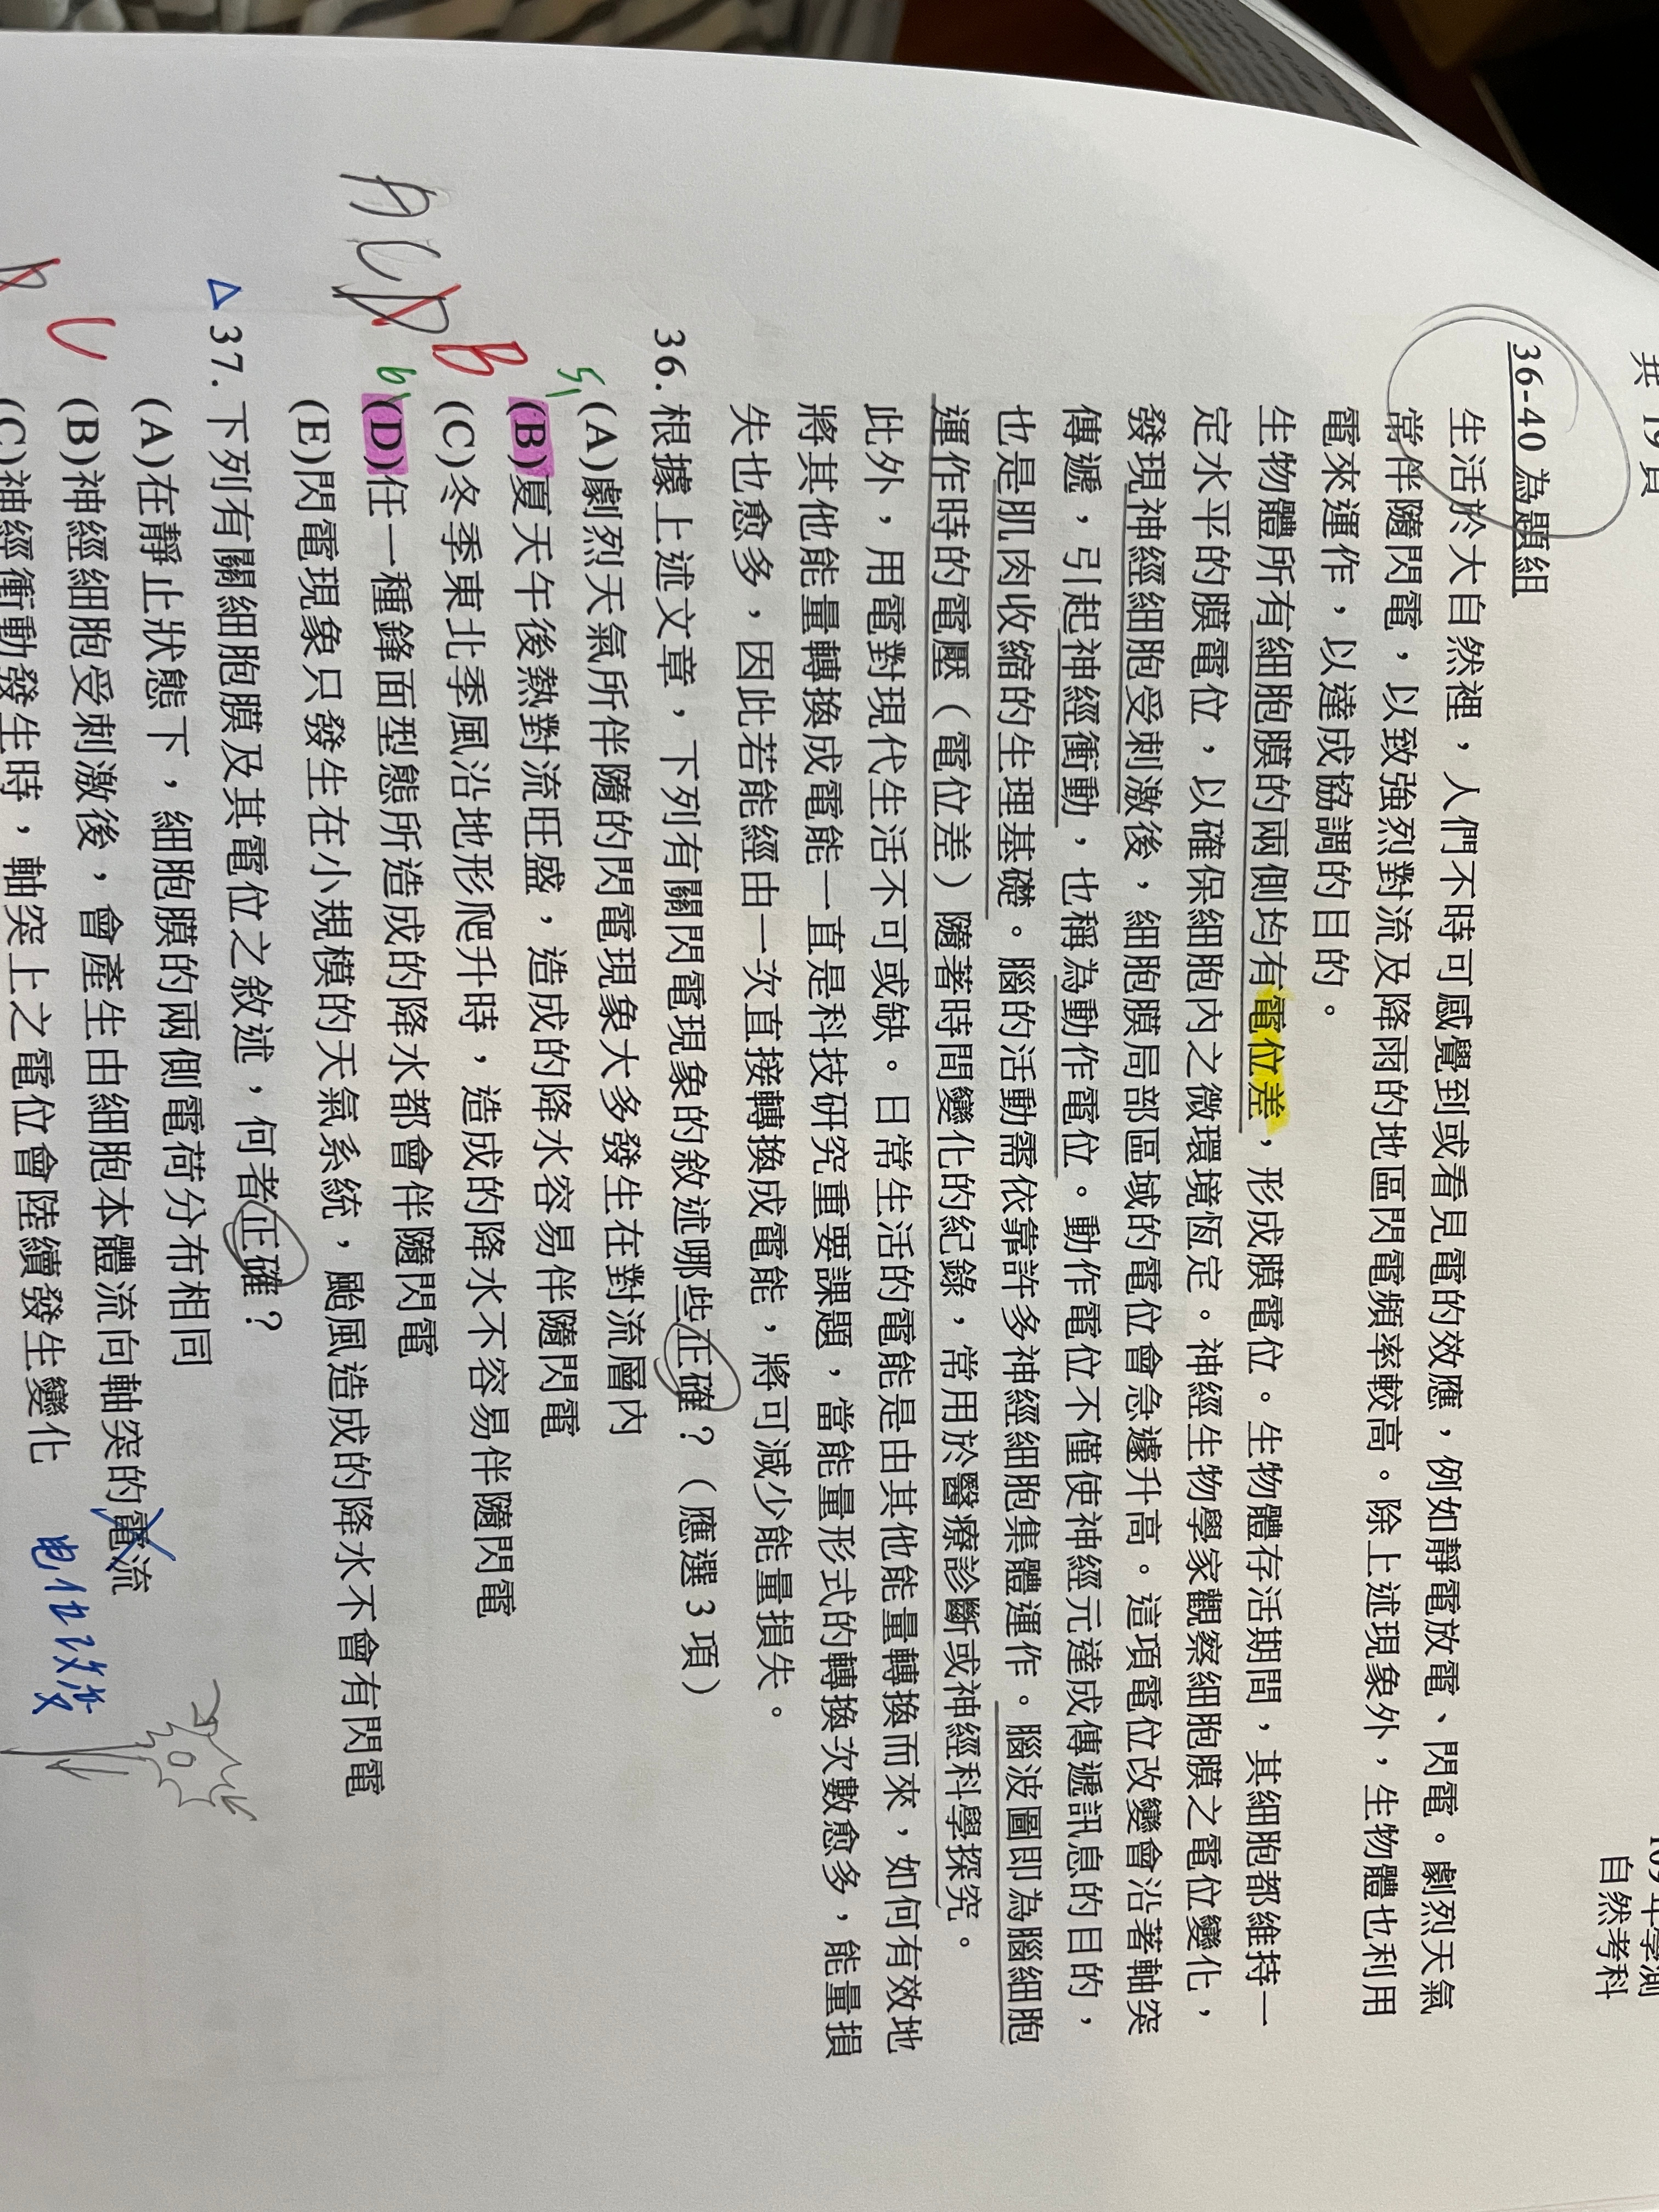 共 19 頁
109 年學測
自然考科
36-40 為題組
生活於大自然裡，人們不時可感覺到或看見電的效應，例如靜電放電、閃電。劇烈天氣
常伴隨閃電，以致強烈對流及降雨的地區閃電頻率較高。除上述現象外，生物體也利用
電來運作，以達成協調的目的。
生物體所有細胞膜的兩側均有電位差，形成膜電位。生物體存活期間，其細胞都維持一
定水平的膜電位，以確保細胞內之微環境恆定。神經生物學家觀察細胞膜之電位變化，
發現神經細胞受刺激後，細胞膜局部區域的電位會急遽升高。這項電位改變會沿著軸突
傳遞，引起神經衝動，也稱為動作電位。動作電位不僅使神經元達成傳遞訊息的目的，
也是肌肉收縮的生理基礎。腦的活動需依靠許多神經細胞集體運作。腦波圖即為腦細胞
運作時的電壓（電位差）隨著時間變化的紀錄，常用於醫療診斷或神經科學探究。
此外，用電對現代生活不可或缺。日常生活的電能是由其他能量轉換而來，如何有效地
將其他能量轉換成電能一直是科技研究重要課題，當能量形式的轉換次數愈多，能量損
失也愈多，因此若能經由一次直接轉換成電能，將可減少能量損失。
36.根據上述文章，下列有關閃電現象的敘述哪些正確？（應選 3 項）
(A)劇烈天氣所伴隨的閃電現象大多發生在對流層內
(B)夏天午後熱對流旺盛，造成的降水容易伴隨閃電
(C)冬季東北季風沿地形爬升時，造成的降水不容易伴隨閃電
(D)任一種鋒面型態所造成的降水都會伴隨閃電
(E)閃電現象只發生在小規模的天氣系統，颱風造成的降水不會有閃電
ACD
B
△37.下列有關細胞膜及其電位之敘述，何者正確？
(A)在靜止狀態下，細胞膜的兩側電荷分布相同
(B)神經細胞受刺激後，會產生由細胞本體流向軸突的電流
电位改變
C
(C)神經衝動發生時，軸突上之電位會陸續發生變化